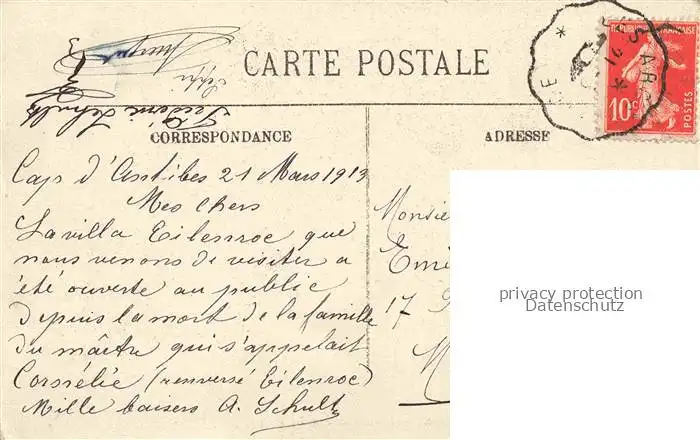 CARTE POSTALE
RÉPUBLIQUE FRANÇAISE
10c
POSTES
CORRESPONDANCE
ADRESSE
Cap d'Antibes 21 Mars 1913
Mes chers
La villa Eilenroc que
nous venons de visiter a
été ouverte au public
depuis la mort de la famille
du maître qui s'appelait
Cornélie (renversé Eilenroc)
Mille baisers A. Schult
Monsie
Emi
17
M
privacy protection
Datenschutz